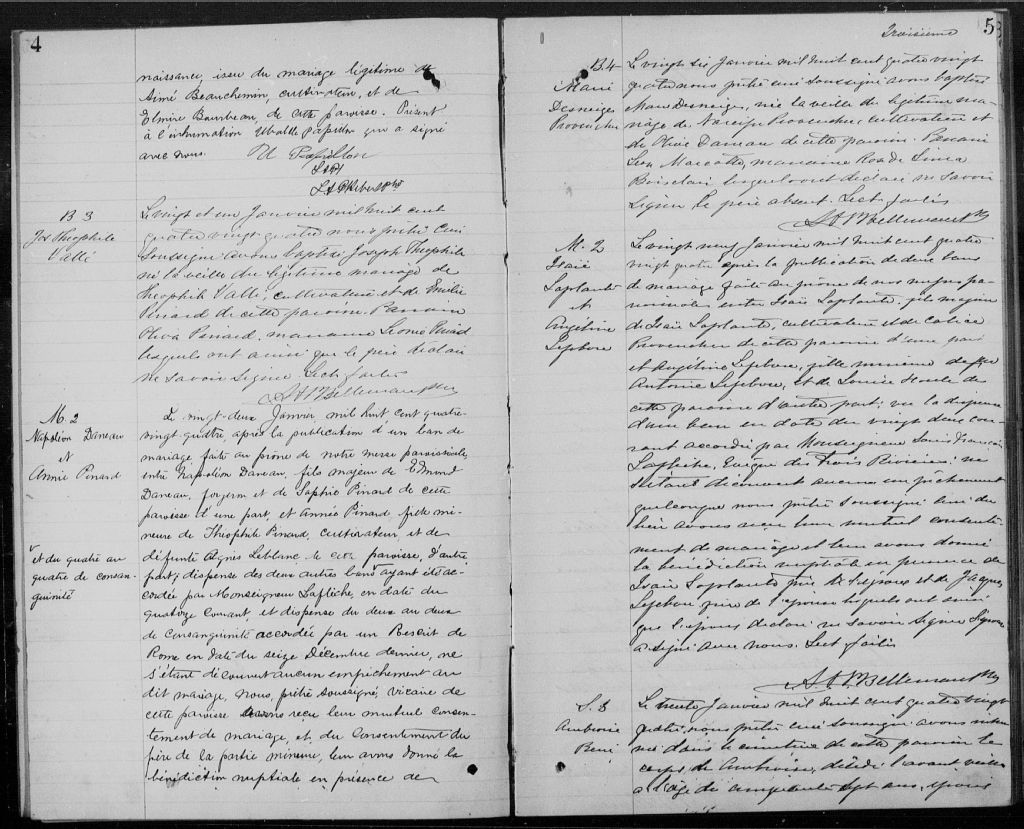 4
naissance, issu du mariage légitime de
Aimé Beauchemin, cultivateur, et de
Elmire Bourbeau, de cette paroisse. Présent
à l'inhumation Ubalde Papillon qui a signé
avec nous. U Papillon
B 3
Jos Théophile
Vallé
Le vingt et un Janvier mil huit cent
quatre vingt quatre nous prêtre curé
soussigné avons baptisé Joseph Théophile
né la veille du légitime mariage de
Théophile Vallé, cultivateur et de Emélie
Pinard de cette paroisse. Parrain
Oliva Pinard, marraine Léonie Pinard
lesquels ont ainsi que le père déclaré
ne savoir signer. Lect. faites
M. 2
Napoléon Daneau
et
Annie Pinard
Le vingt-deux Janvier mil huit cent quatre-
vingt quatre, après la publication d'un ban de
mariage faite au prône de notre messe paroissiale,
entre Napoléon Daneau, fils majeur de Edmond
Daneau, forgeron et de Sophie Pinard de cette
paroisse d'une part, et Année Pinard fille mi-
neure de Théophile Pinard, cultivateur, et de
défunte Agnès Leblanc de cette paroisse, d'autre
part; dispense des deux autres bans ayant été ac-
cordée par Monseigneur Laflèche, en date du
quatorze courant, et dispense du deux au deux
et du quatre au
quatre de consan-
guinité
de consanguinité accordée par un Rescrit de
Rome en date du seize Décembre dernier, ne
s'étant découvert aucun empêchement au
dit mariage, nous, prêtre soussigné, vicaire de
cette paroisse avons reçu leur mutuel consen-
tement de mariage, et du consentement du
père de la partie mineure, leur avons donné la
bénédiction nuptiale en présence de
Troisième
5
B. 4
Marie
Desneiges
Provencher
Le vingt six Janvier mil huit cent quatre vingt
quatre nous prêtre curé soussigné avons baptisé
Marie Desneiges, née la veille du légitime ma-
riage de Narcisse Provencher, cultivateur et
de Olive Daneau de cette paroisse. Parrain
Léon Marcotte, marraine Rose de Lima
Boisclair lesquels ont déclaré ne savoir
signer le père absent. Lect. faites
M. 2
Isaïe
Laplante
et
Angéline
Lefebvre
Le vingt neuf Janvier mil huit cent quatre
vingt quatre après la publication de deux bans
de mariage faite au prône de nos messes pa-
roissiales entre Isaïe Laplante, fils majeur
de Isaïe Laplante, cultivateur et de
Provencher de cette paroisse d'une part
et Angéline Lefebvre, fille mineure de feu
Antoine Lefebvre, et de Louise Houle de
cette paroisse d'autre part; vu la dispense
d'un ban en date du vingt deux cou-
rant accordée par Monseigneur Louis François
Laflèche, Evêque des Trois Rivières; ne
s'étant découvert aucun empêchement
quelconque nous prêtre soussigné curé du
lieu avons reçu leur mutuel consente-
ment de mariage et leur avons donné
la bénédiction nuptiale en présence de
Isaïe Laplante père de l'époux et de Jacques
Lefebvre frère de l'épouse lesquels ont ainsi
que l'épouse déclaré ne savoir signer l'époux
a signé avec nous. Lect faite
S. 3
Ambroise
Le trente Janvier mil huit cent quatre vingt
quatre, nous prêtre curé soussigné avons inhu-
mé dans le cimetière de cette paroisse le
corps de Ambroise, décédé l'avant veille
à l'âge de cinquante sept ans, époux